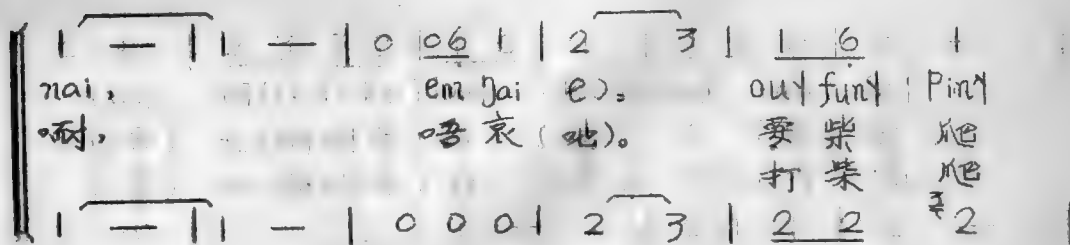 1 — | 1 — | 0 06 1 | 2 3 | 1 6 1
nai, em jai e)。 ouy funy piny
嗬, 唔哀(吔)。 要柴 爬
打柴 爬
1 — | 1 — | 0 0 0 | 2 3 | 2 2 2